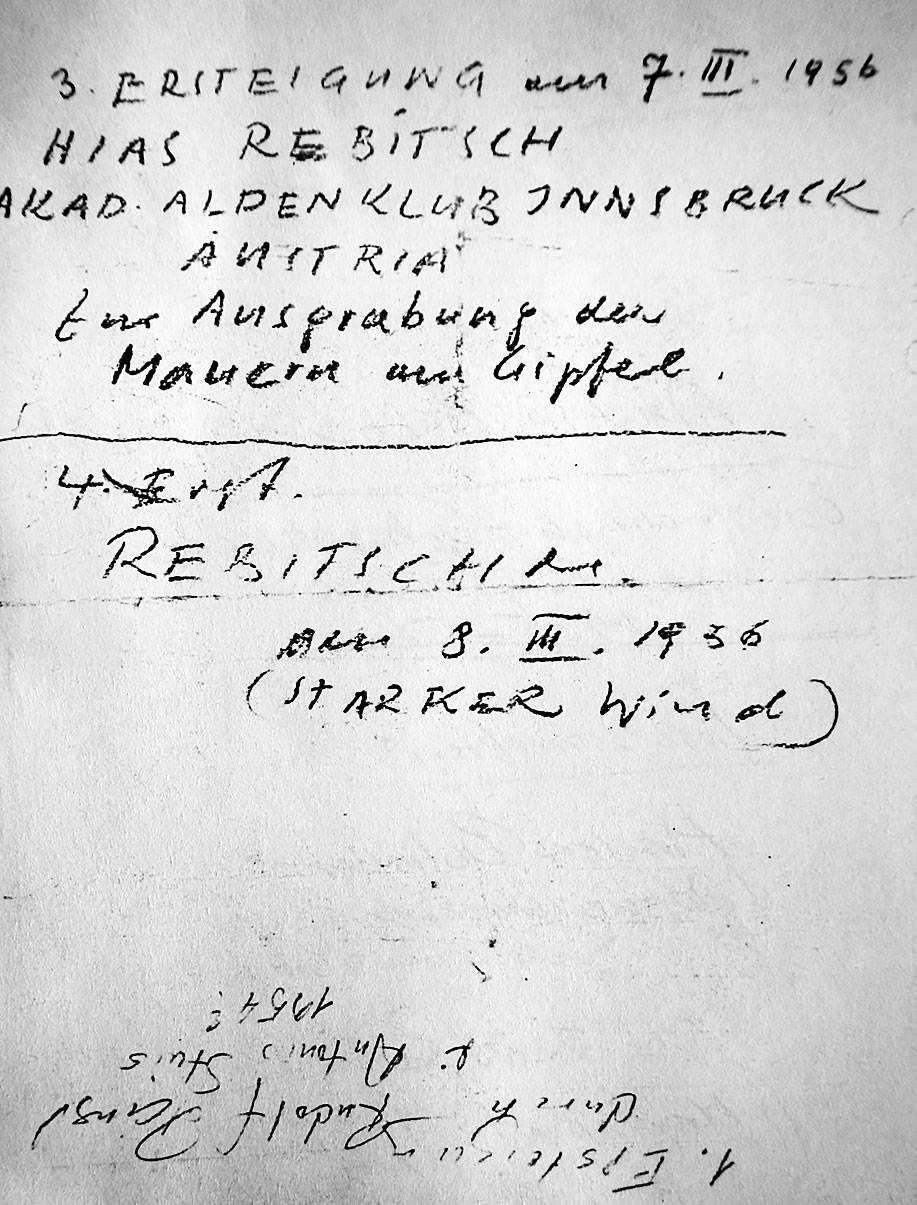 3. ERSTEIGUNG am 7. III. 1956
HIAS REBITSCH
AKAD. ALPENKLUB INNSBRUCK
AUSTRIA
Zur Ausgrabung der
Mauern am Gipfel.
4. Erst.
REBITSCH
am 8. III. 1956
(STARKER Wind)
1. Ersteigung
durch Rudolf
u. Antonio
1954